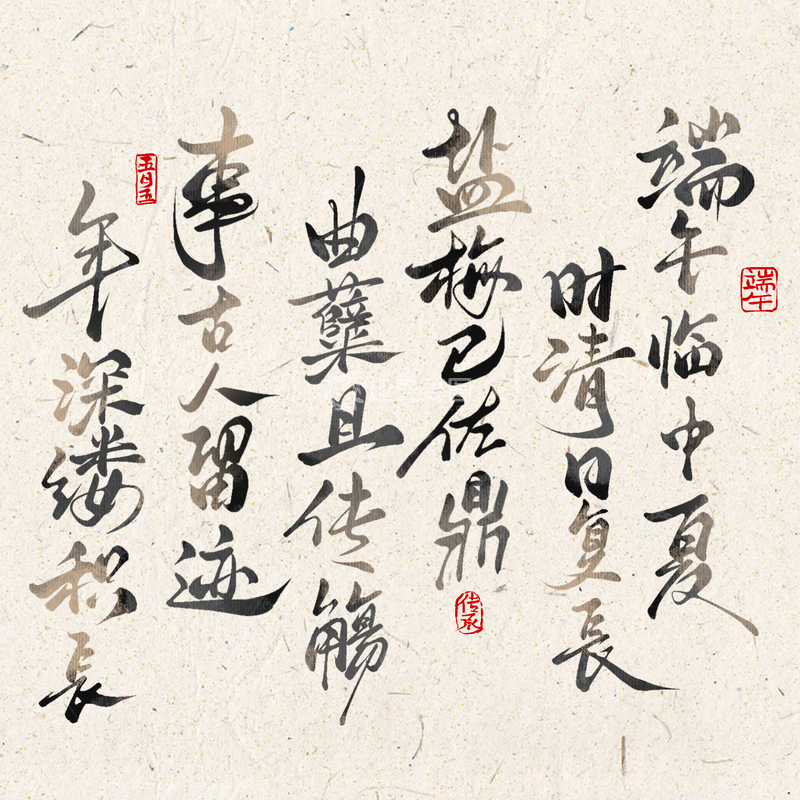 端午临中夏
时清日复長
盐梅已佐鼎
曲蘖且传觴
事古人留迹
年深缕积長
端午
传承
五月五